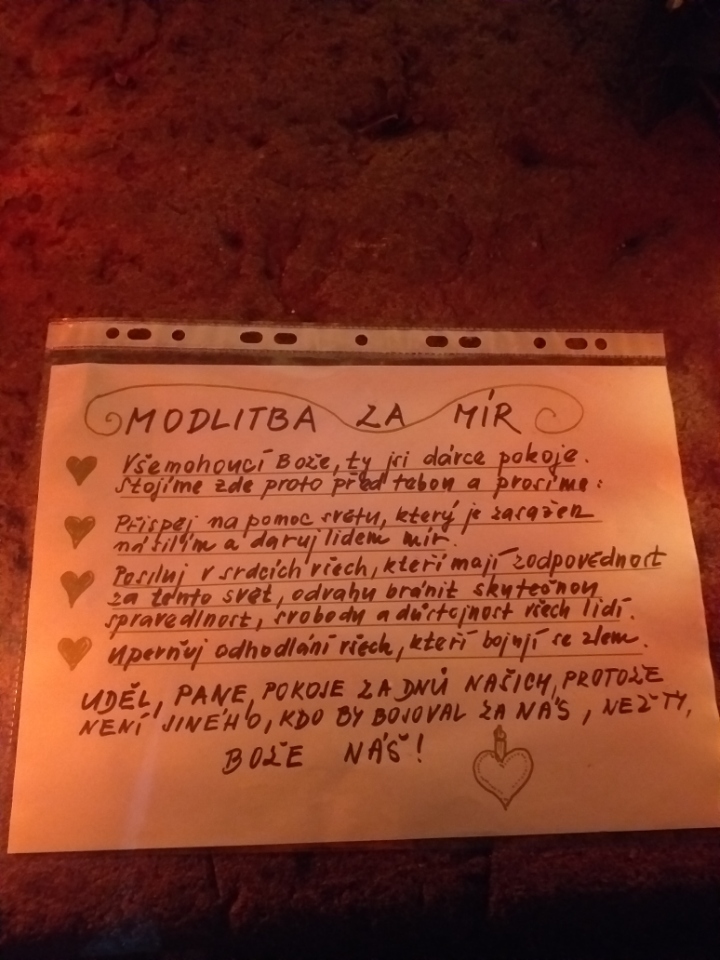 MODLITBA ZA MÍR
Všemohoucí Bože, ty jsi dárce pokoje.
Stojíme zde proto před tebou a prosíme:
Přispěj na pomoc světu, který je zasažen
násilím a daruj lidem mír.
Posiluj v srdcích všech, kteří mají zodpovědnost
za tento svět, odvahu bránit skutečnou
spravedlnost, svobodu a důstojnost všech lidí.
Upevňuj odhodlání všech, kteří bojují se zlem.
UDĚL, PANE, POKOJE ZA DNŮ NAŠICH, PROTOŽE
NENÍ JINÉHO, KDO BY BOJOVAL ZA NÁS, NEŽ TY,
BOŽE NÁŠ!